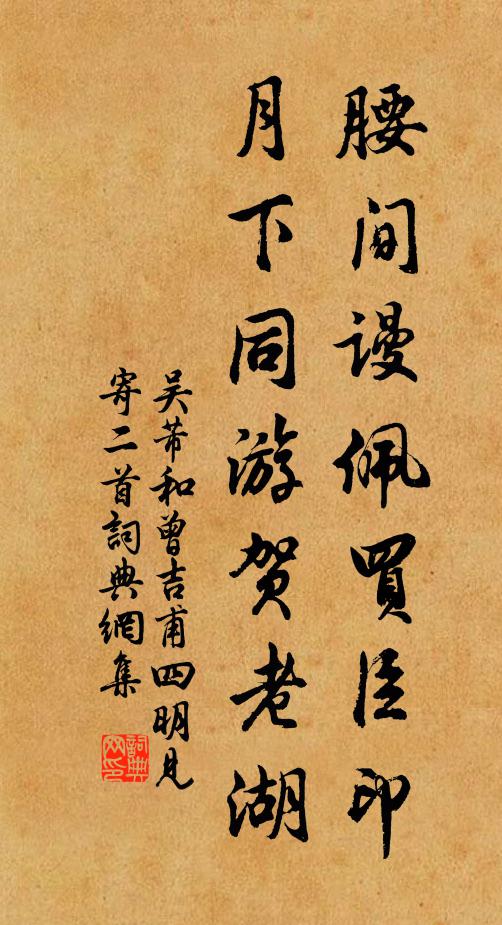 腰间谩佩買臣印
月下同游贺老湖
吴芾和曾吉甫四明見
寄二首詞典網集
詞典
网印